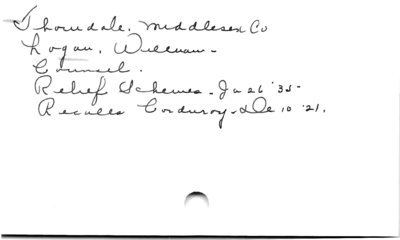 Thorndale, Middlesex Co
Logan, William -
Council.
Relief Schemes - Ja 26 '35 -
Recalls Corduroy - De 10 '21.